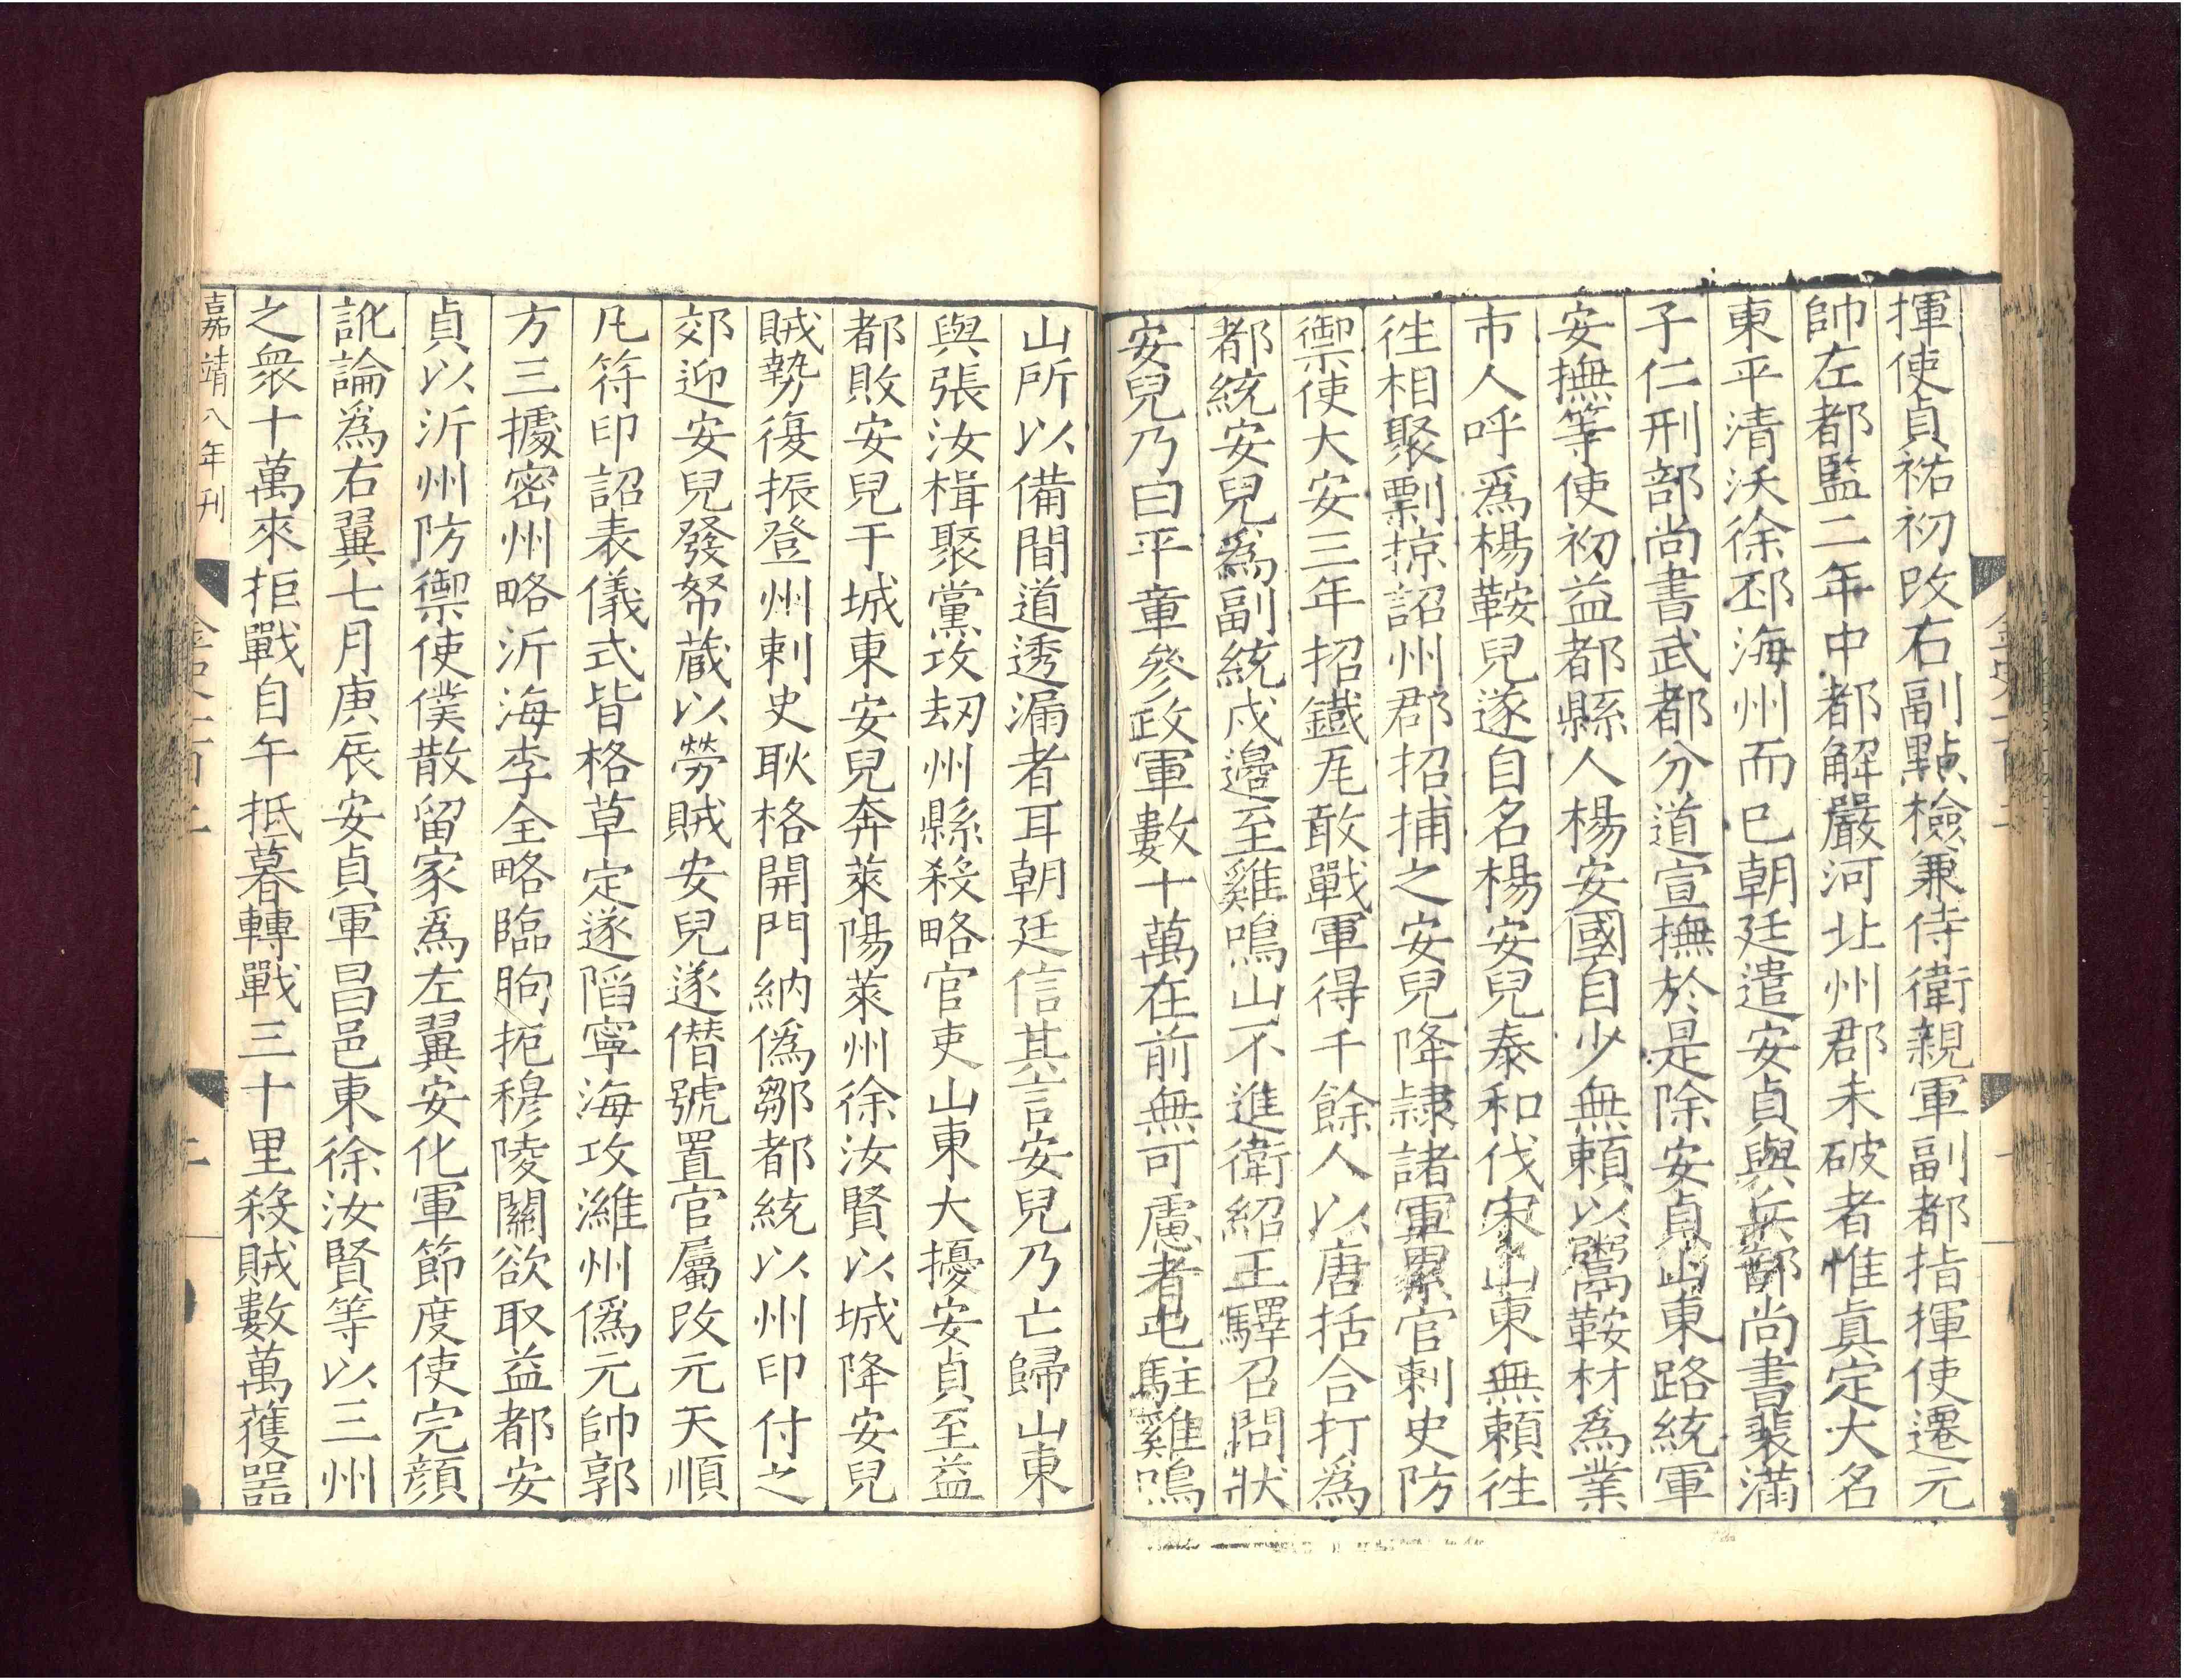 揮使貞祐初改右副點檢兼侍衛親軍副都指揮使遷元
帥左都監二年中都解嚴河北州郡未破者惟真定大名
東平清沃徐邳海州而已朝廷遣安貞與兵部尚書裴滿
子仁刑部尚書武都分道宣撫於是除安貞山東路統軍
安撫等使初益都縣人楊安國自少無賴以鬻鞍材爲業
市人呼爲楊鞍兒遂自名楊安兒泰和伐宋山東無賴徃
徃相聚剽掠詔州郡招捕之安兒降隸諸軍累官刺史防
禦使大安三年招鐵瓦敢戰軍得千餘人以唐括合打爲
都統安兒爲副統戍邊至雞鳴山不進衛紹王驛召問狀
安兒乃曰平章參政軍數十萬在前無可慮者屯駐雞鳴
山所以備間道透漏者耳朝廷信其言安兒乃亡歸山東
與張汝楫聚黨攻刼州縣殺略官吏山東大擾安貞至益
都敗安兒于城東安兒奔萊陽萊州徐汝賢以城降安兒
賊勢復振登州刺史耿格開門納僞鄒都統以州印付之
郊迎安兒發帑藏以勞賊安兒遂僭號置官屬改元天順
凡符印詔表儀式皆格草定遂陷寧海攻濰州僞元帥郭
方三據密州略沂海李全略臨朐扼穆陵關欲取益都安
貞以沂州防禦使僕散留家爲左翼安化軍節度使完顏
訛論爲右翼七月庚辰安貞軍昌邑東徐汝賢等以三州
之衆十萬來拒戰自午抵暮轉戰三十里殺賊數萬獲器
嘉靖八年刊